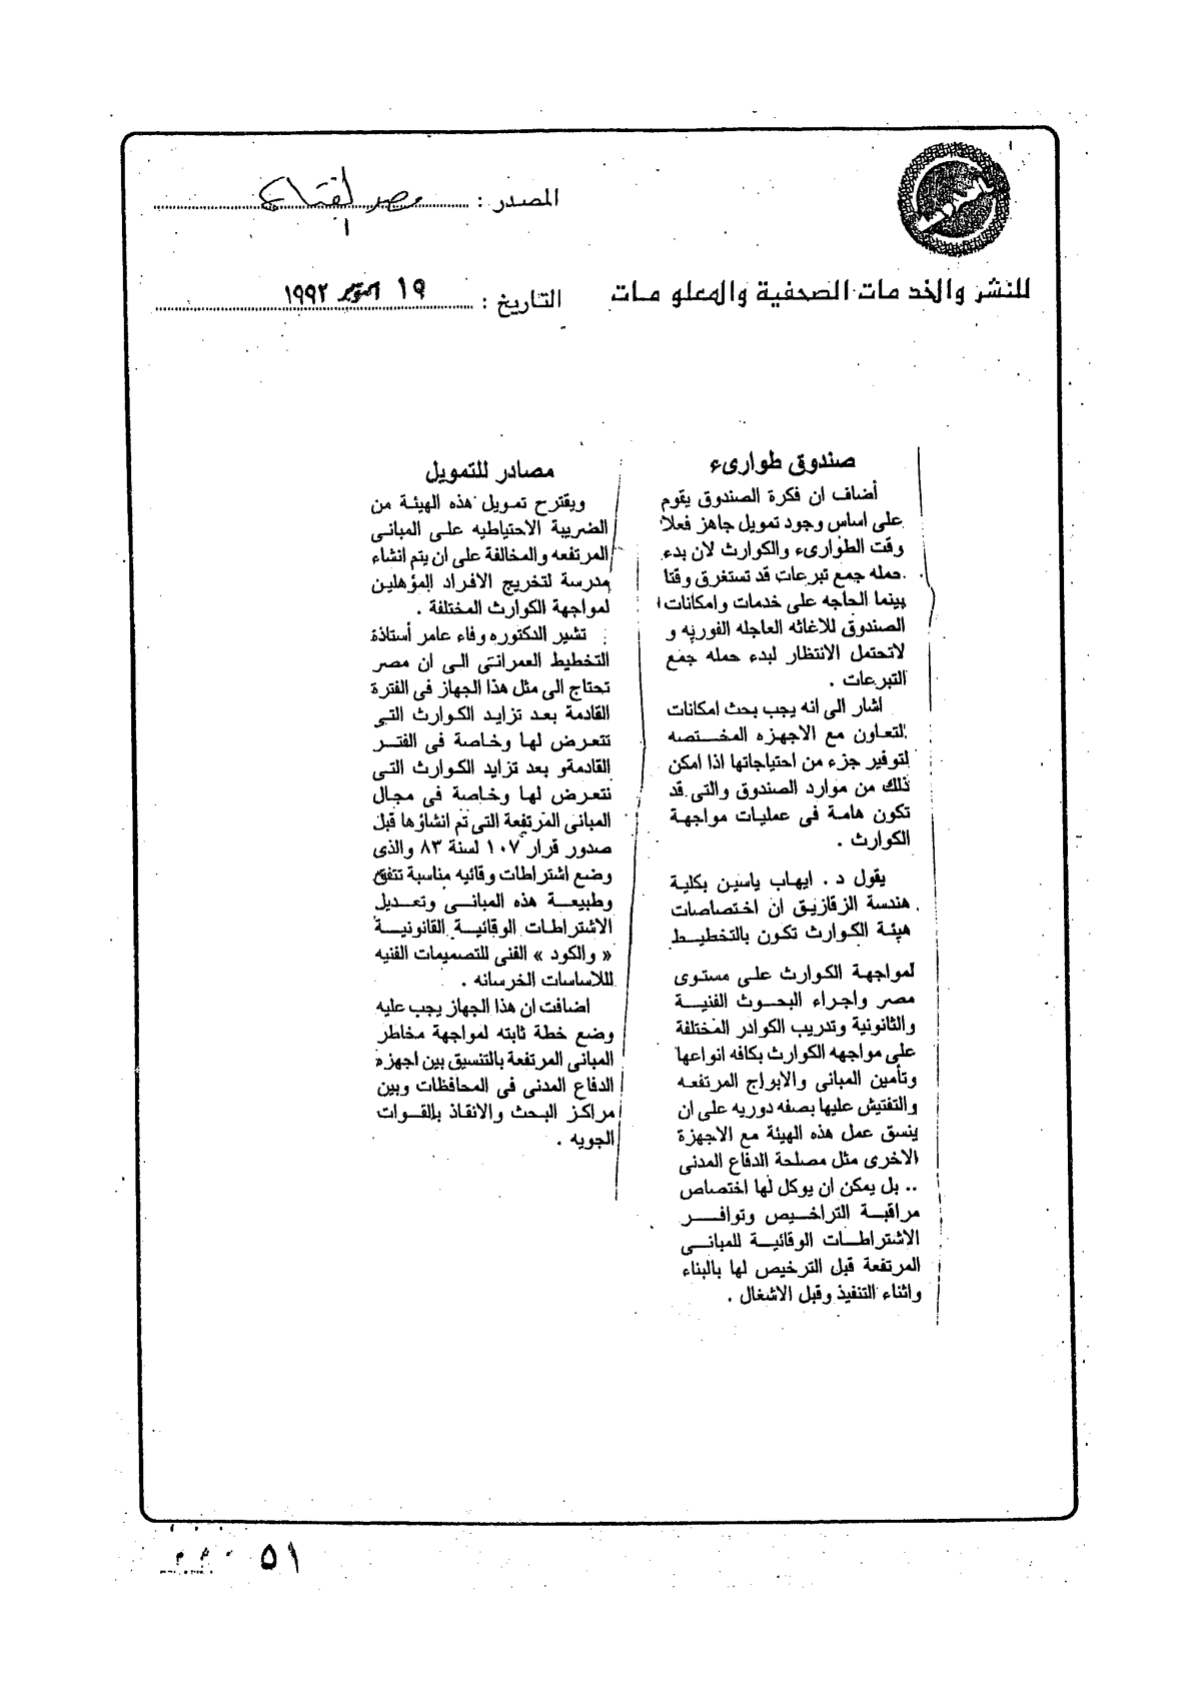 المصدر : مصر الفتاة
للنشر والخدمات الصحفية والمعلومات
التاريخ : ١٩ اكتوبر ١٩٩٢
صندوق طوارىء
أضاف ان فكرة الصندوق يقوم
على اساس وجود تمويل جاهز فعلا
وقت الطوارىء والكوارث لان بدء
حمله جمع تبرعات قد تستغرق وقتا
بينما الحاجه على خدمات وامكانات
الصندوق للاغاثه العاجله الفوريه و
لاتحتمل الانتظار لبدء حمله جمع
التبرعات .
اشار الى انه يجب بحث امكانات
التعاون مع الاجهزه المختصه
لتوفير جزء من احتياجاتها اذا امكن
ذلك من موارد الصندوق والتى قد
تكون هامة فى عمليات مواجهة
الكوارث .
يقول د . ايهاب ياسين بكلية
هندسة الزقازيق ان اختصاصات
هيئة الكوارث تكون بالتخطيط
لمواجهة الكوارث على مستوى
مصر واجراء البحوث الفنية
والثانونية وتدريب الكوادر المختلفة
على مواجهه الكوارث بكافه انواعها
وتأمين المبانى والابراج المرتفعه
والتفتيش عليها بصفه دوريه على ان
ينسق عمل هذه الهيئة مع الاجهزة
الاخرى مثل مصلحة الدفاع المدنى
.. بل يمكن ان يوكل لها اختصاص
مراقبة التراخيص وتوافر
الاشتراطات الوقائية للمبانى
المرتفعة قبل الترخيص لها بالبناء
واثناء التنفيذ وقبل الاشغال .
مصادر للتمويل
ويقترح تمويل هذه الهيئة من
الضريبة الاحتياطيه على المبانى
المرتفعه والمخالفة على ان يتم انشاء
مدرسة لتخريج الافراد المؤهلين
لمواجهة الكوارث المختلفة .
تشير الدكتوره وفاء عامر أستاذة
التخطيط العمرانى الى ان مصر
تحتاج الى مثل هذا الجهاز فى الفترة
القادمة بعد تزايد الكوارث التى
تتعرض لها وخاصة فى الفتر
القادمةو بعد تزايد الكوارث التى
نتعرض لها وخاصة فى مجال
المبانى المرتفعة التى تم انشاؤها قبل
صدور قرار ١٠٧ لسنة ٨٣ والذى
وضع اشتراطات وقائيه مناسبة تتفق
وطبيعة هذه المبانى وتعديل
الاشتراطات الوقائية القانونية
« والكود » الفنى للتصميمات الفنيه
للاساسات الخرسانه .
اضافت ان هذا الجهاز يجب عليه
وضع خطة ثابته لمواجهة مخاطر
المبانى المرتفعة بالتنسيق بين اجهزه
الدفاع المدنى فى المحافظات وبين
مراكز البحث والانقاذ بالقوات
الجويه .
٥١